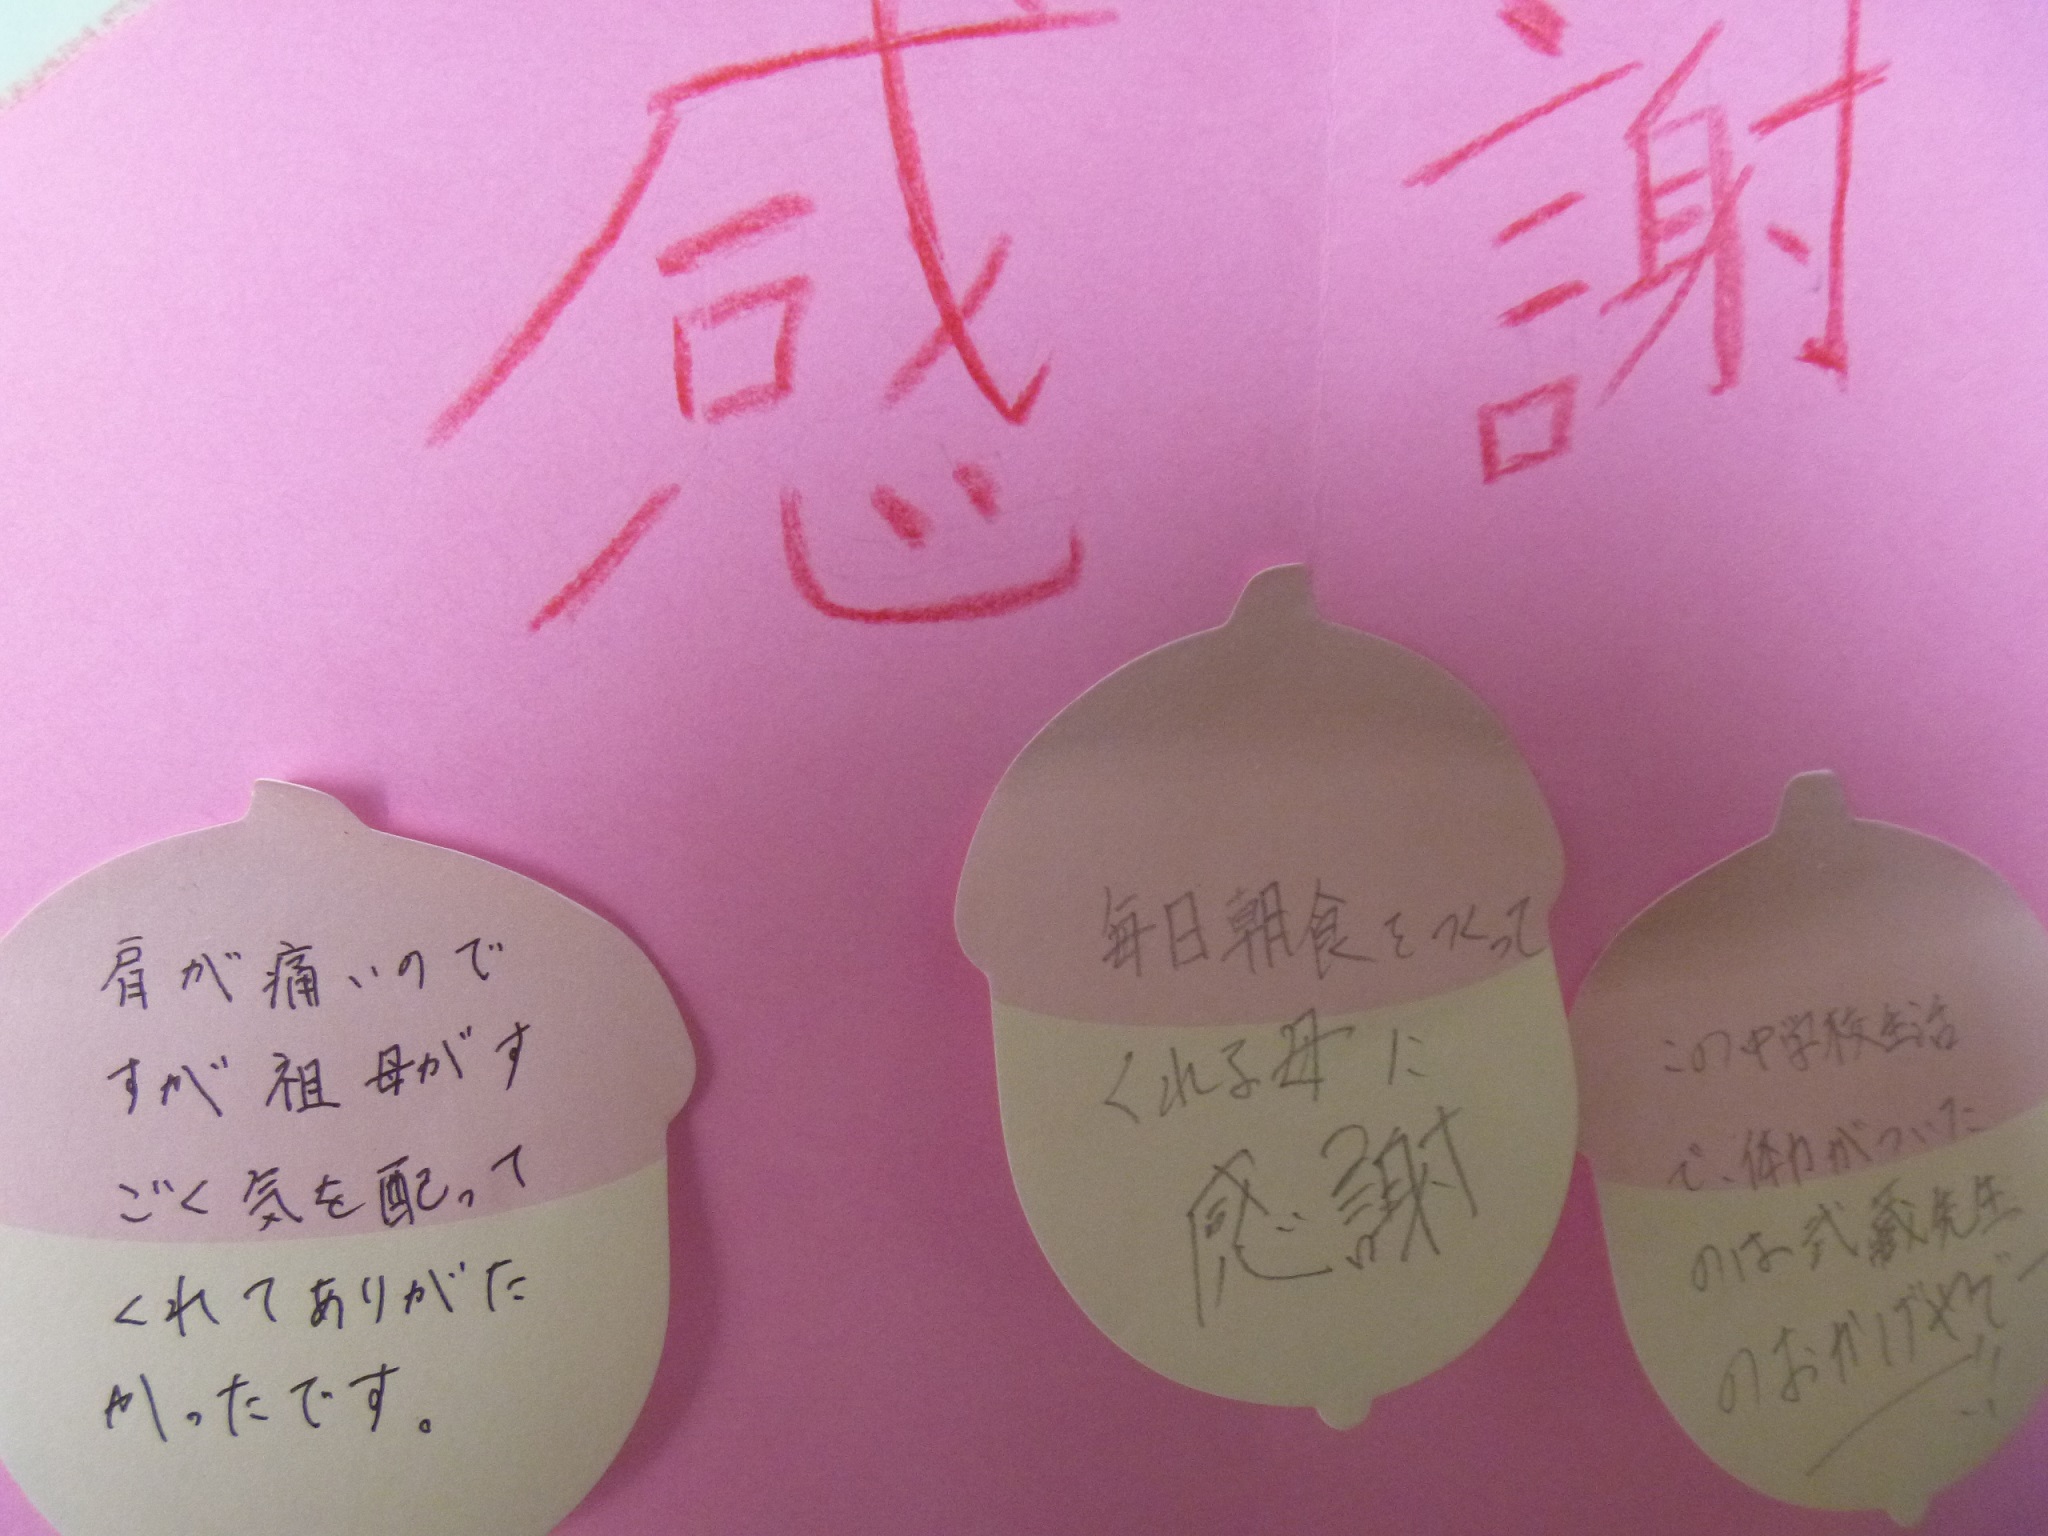 感謝
肩が痛いので
すが祖母がす
ごく気を配って
くれてありがた
かったです。
毎日朝食をつくって
くれる母に
感謝
この中学校生活
で、体力がついた
のは武蔵先生
のおかげやで
!!